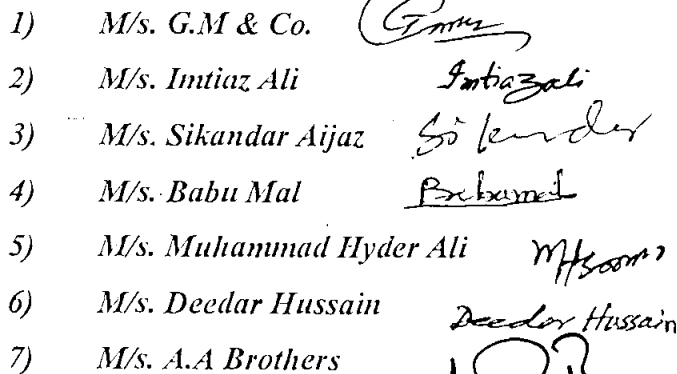 1) M/s. G.M & Co.
2) M/s. Imtiaz Ali Imtiazali
3) M/s. Sikandar Aijaz Sikander
4) M/s. Babu Mal Babumal
5) M/s. Muhammad Hyder Ali
6) M/s. Deedar Hussain Deedar Hussain
7) M/s. A.A Brothers